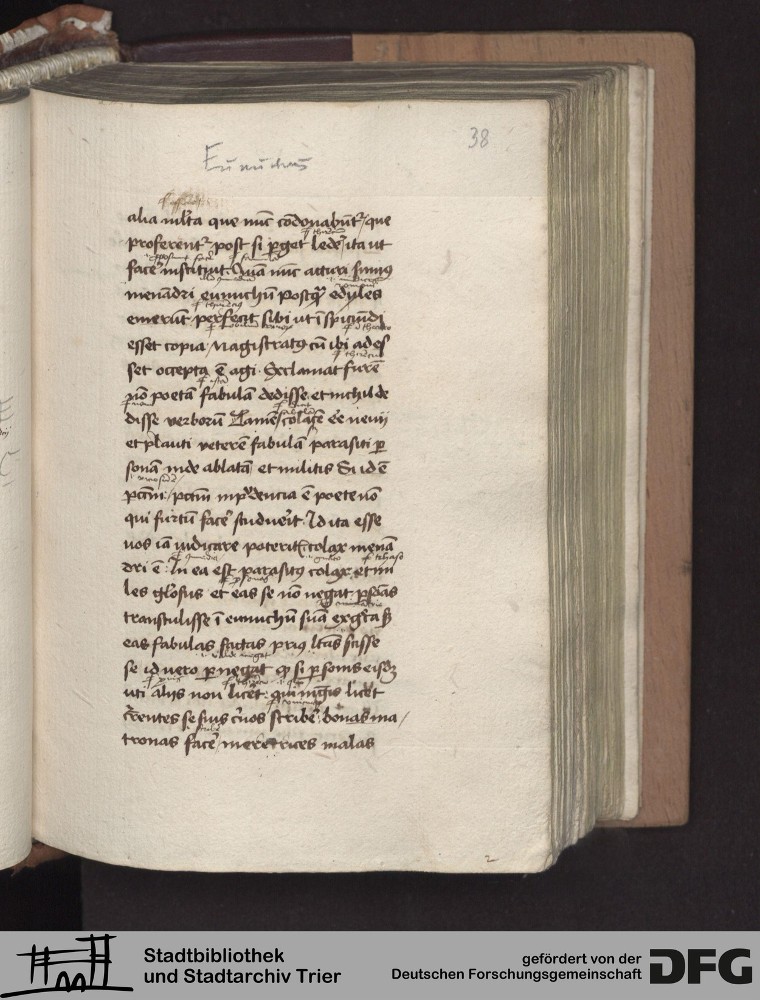 38
Eunuchus
alia ml̄ta que nūc cōdonabūt᷑ que
proferent᷑ post si ꝑget lede᷑ ita ut
face᷑ instituit. Quā nūc acturi sumꝰ
menādri eunuchū postqꝫ edyles
emerūt perfecit sibi ut īspiciūdi
esset copia / magistratꝰ cū ibi ades
set occepta ē agi. Exclamat furē
nō poetā fabulā dedisse et nichil de
disse verborū Tamē colacē eē nevij
et plauti veterē fabulā parasiti ꝑ
sonā inde ablatā et militis Si id ē
pctm̄ / pctm̄ inprudencia ē poete nō
qui furtū face᷑ studuerit. Id ita esse
vos iā iudicare poterit. colax menā
dri ē. In ea est parasitꝰ colax. et mi
les glōsus et eas se nō negat ꝑsōas
transtulisse ī eunuchū suā ex grēca ſꝫ
eas fabulas factas priꝰ lātās scisse
se id vero ꝑnegat ꝙ si ꝑsonis eisdꝫ
uti alijs non licet: qui mgis licēt
currentes se suos scribe᷑. bonas ma /
tronas face᷑ / meretrices malas
2
Stadtbibliothek
und Stadtarchiv Trier
gefördert von der
Deutschen Forschungsgemeinschaft
DFG